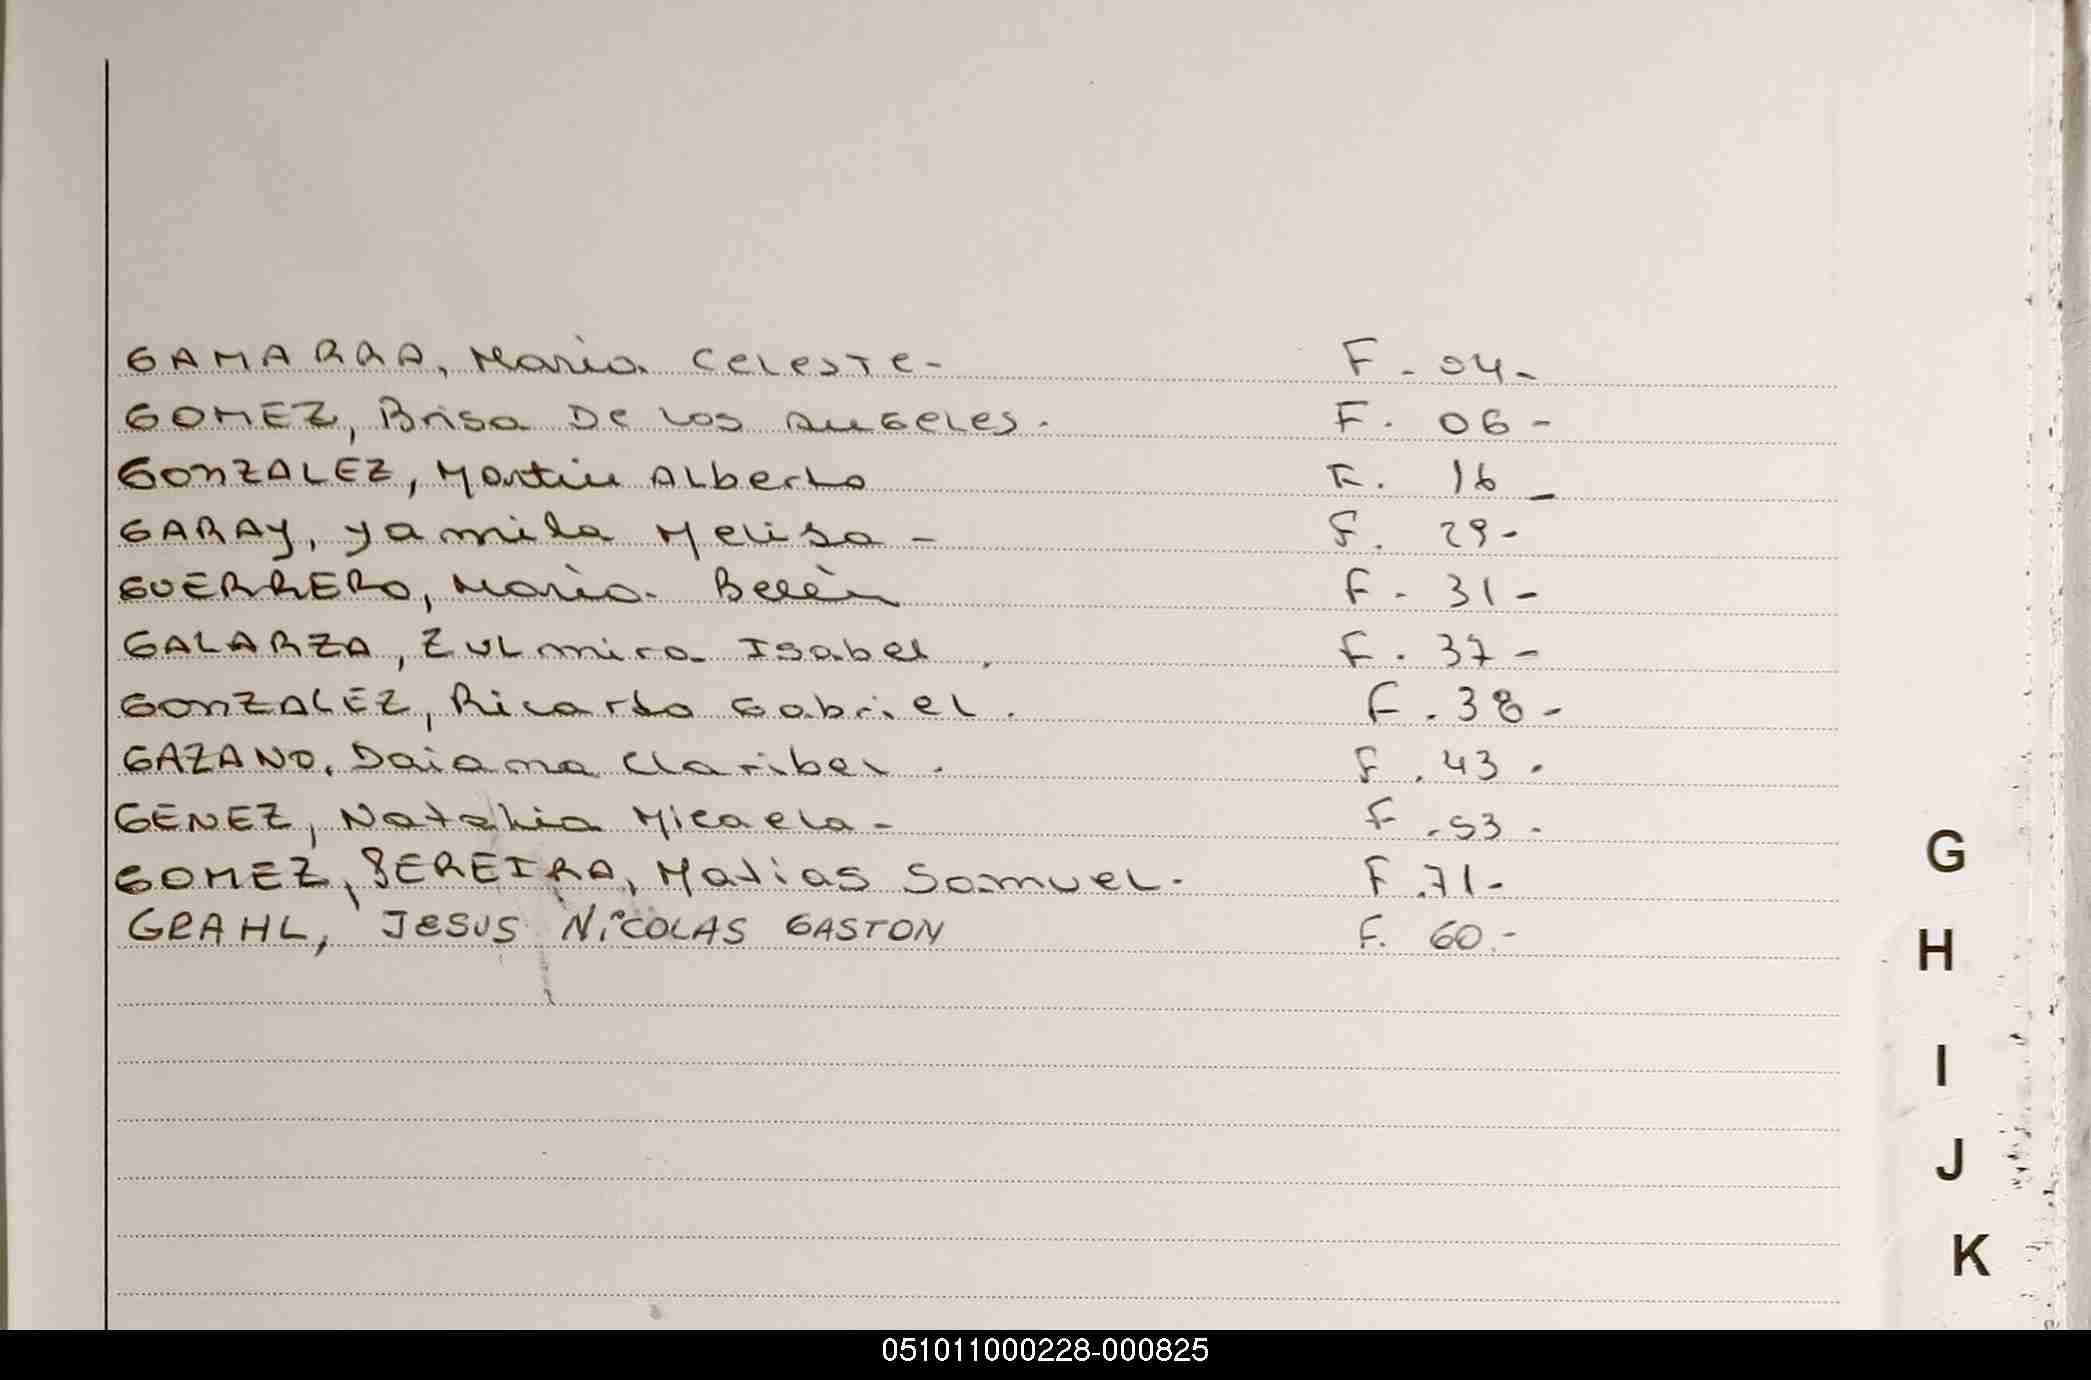 GAMARRA, Maria Celeste- F - 04-
GOMEZ, Brisa De Los Angeles. F. 06-
GONZALEZ, Martin Alberto F. 16 -
GARAY, Yamila Melisa - F. 29-
GUERRERO, Maria. Belén F - 31 -
GALARZA, Zulmira Isabel. F. 37-
GONZALEZ, Ricardo Gabriel. F. 38-
GAZANO, Daiana Claribel. F. 43.
GENEZ, Natalia Micaela- F. 53.
GOMEZ, PEREIRA, Matias Samuel. F. 71-
GRAHL, JESUS NICOLAS GASTON F. 60.-
G
H
I
J
K
051011000228-000825